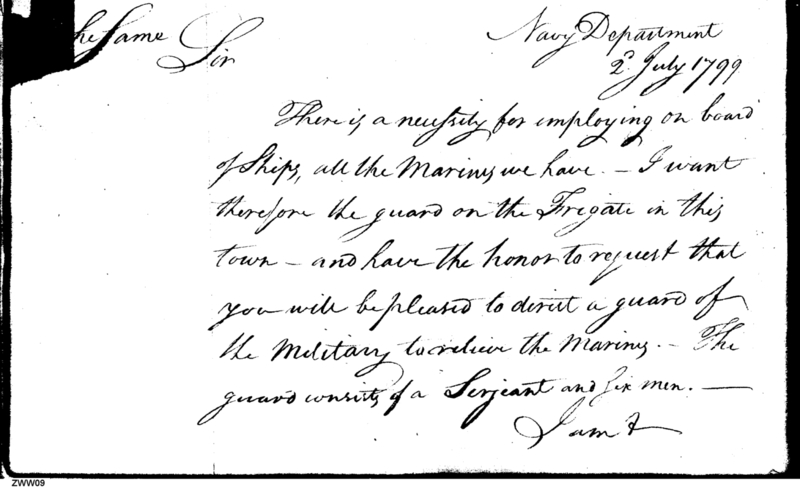 he Same
Navy Department
Sir
2d July 1799
There is a necessity for employing on board
of Ships, all the Marines we have. – I want
therefore the guard on the Frigate in this
town – and have the honor to request that
you will be pleased to direct a guard of
the Military to relieve the Marines. – The
guard consists of a Serjeant and six men. —
I am &
ZWW09